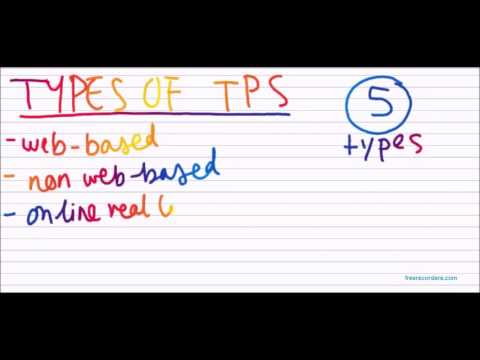 TYPES OF TPS
5
types
- web-based
- non web-based
- online real
freerecorders.com